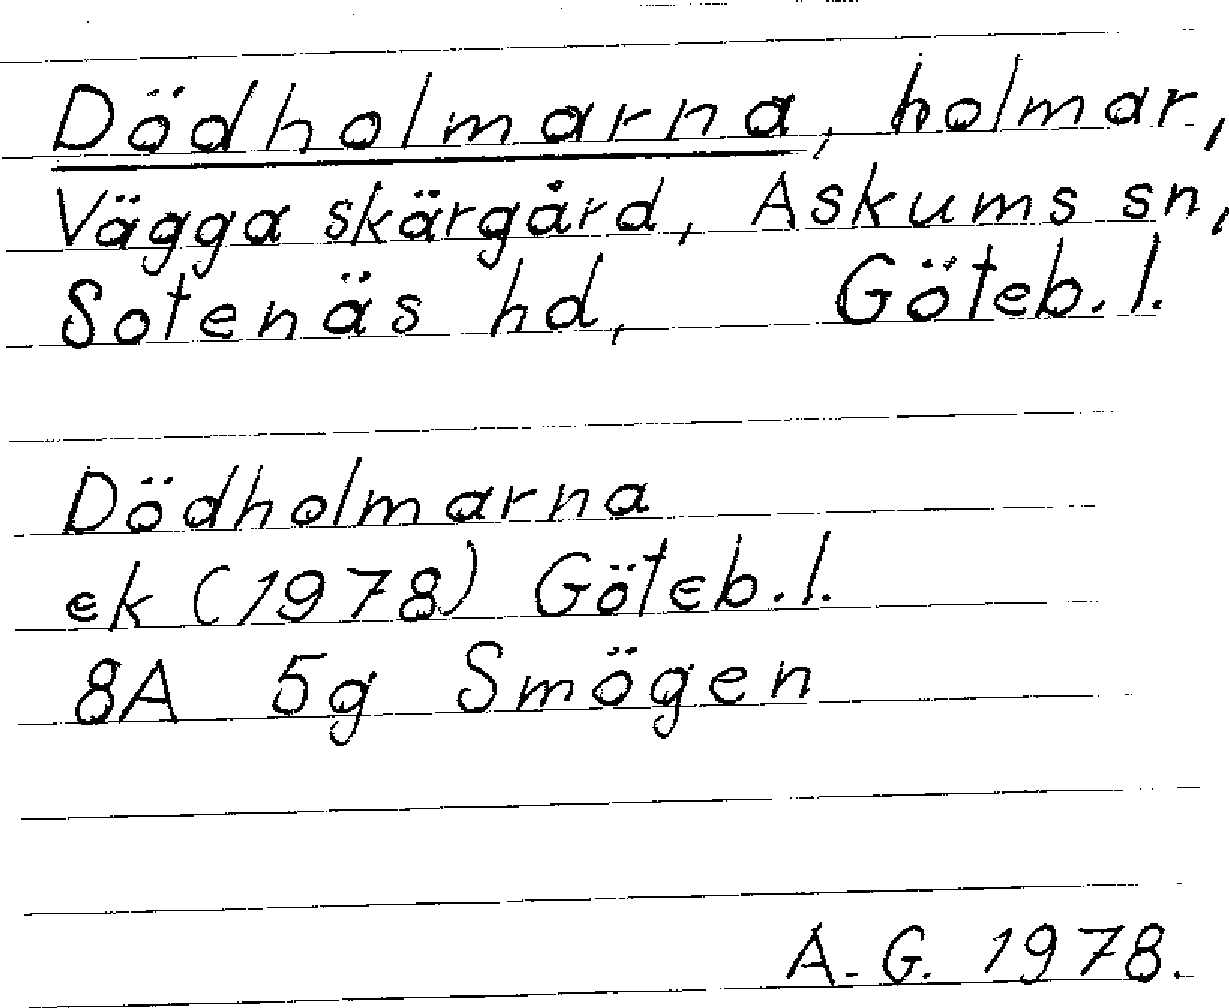 Dödholmarna, holmar,
Vägga skärgård, Askums sn,
Sotenäs hd, Göteb. l.
Dödholmarna
ek (1978) Göteb. l.
8A 5g Smögen
A. G. 1978.